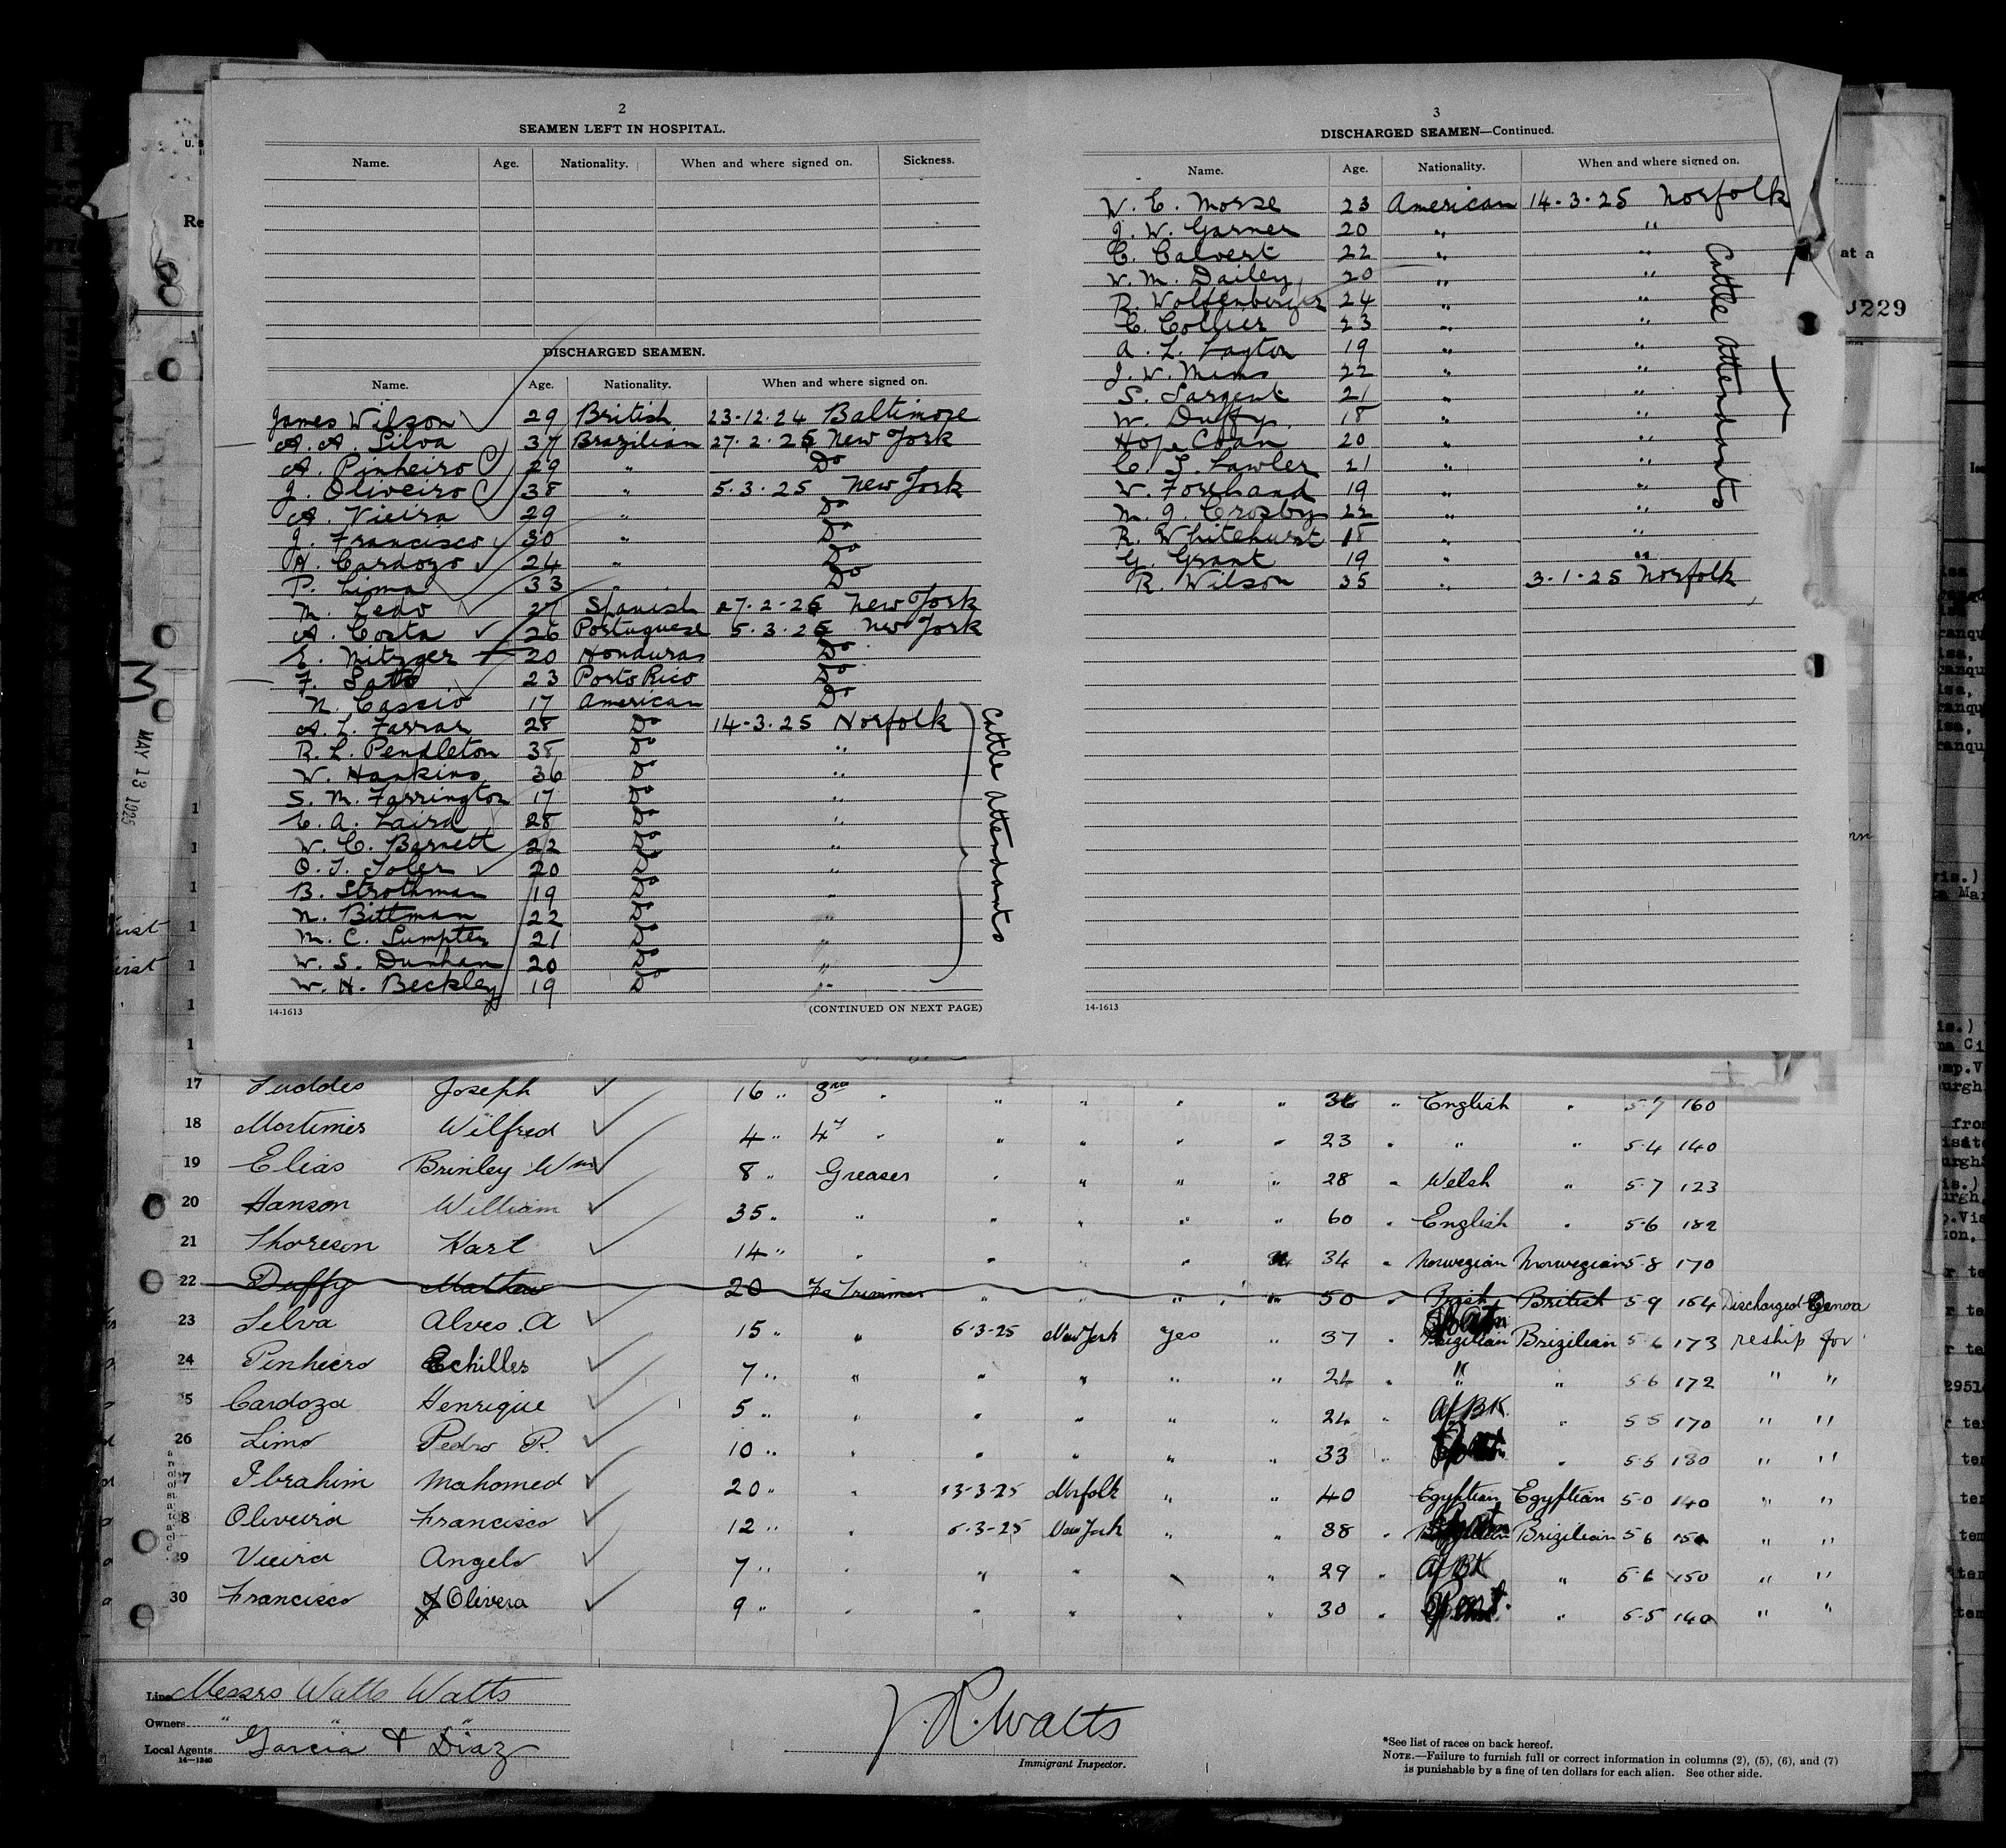 2
SEAMEN LEFT IN HOSPITAL.
Name. Age. Nationality. When and where signed on. Sickness.
DISCHARGED SEAMEN.
Name. Age. Nationality. When and where signed on.
James Wilson 29 British 23-12-24 Baltimore
A. A. Silva 37 Brazilian 27.2.25 New York
A. Pinheiro 29 " Do
J. Oliveiro 38 " 5.3.25 New York
A. Vieira 29 " Do
J. Francisco 30 " Do
H. Cardozo 24 " Do
P. Lima 33 " Do
M. Leao 27 Spanish 27-2-25 New York
A. Costa 26 Portuguese 5.3.25 New York
E. Mitzger 20 Honduras Do
F. Soto 23 Porto Rico Do
N. Cascio 17 American Do
A. L. Farrar 28 Do 14-3.25 Norfolk
R. L. Pendleton 38 Do "
W. Hankins 36 Do "
S. M. Farrington 17 Do "
E. A. Laird 28 Do "
W. C. Barnett 22 Do "
O. T. Toler 20 Do "
B. Strothman 19 Do "
N. Bittman 22 Do "
M. C. Sumpter 21 Do "
W. S. Dunhan 20 Do "
W. H. Beckley 19 Do "
Cattle Attendants
14-1613 (CONTINUED ON NEXT PAGE)
3
DISCHARGED SEAMEN—Continued.
Name. Age. Nationality. When and where signed on.
W. E. Morse 23 American 14-3-25 Norfolk
J. W. Garner 20 " "
C. Calvert 22 " "
W. M. Dailey 20 " "
R. Wolfenbarger 24 " "
C. Collier 23 " "
A. L. Layton 19 " "
J. W. Mims 22 " "
S. Sargent 21 " "
W. Duffy 18 " "
Hope Coan 20 " "
C. S. Lawler 21 " "
W. Forehand 19 " "
M. J. Crosby 22 " "
R. Whitehurst 18 " "
G. Grant 19 " "
R. Wilson 35 " 3-1-25 Norfolk
Cattle Attendants
14-1613
at a
229
MAY 13 1925
17 Joseph 16 " 3rd " " " " " 36 " English " 5-7 160
18 Mortimer Wilfred 4 " 4th " " " " " 23 " " " 5-4 140
19 Elias Brinley Wm 8 " Greaser " " " " 28 " Welsh " 5-7 123
20 Hanson William 35 " " " " " " 60 " English " 5-6 182
21 Thoreson Karl 14 " " " " " " 34 " Norwegian Norwegian 5-8 170
22 Duffy Mathew 20 Fr Trimmer " " " " 50 " Irish British 5-9 164 Discharged Genoa
23 Selva Alves. A 15 " " 6-3-25 New York Yes " 37 " Brizilian Brizilian 5-6 173 reship for
24 Penhiero Echilles 7 " " " " " " 24 " " " 5-6 172 " "
25 Cardoza Henrique 5 " " " " " " 24 " Af BK " 5-5 170 " "
26 Lima Pedro R. 10 " " " " " " 33 " " 5-5 180 " "
27 Ibrahim Mahomed 20 " " 13-3-25 Norfolk " " 40 Egyptian Egyptian 5-0 140 " "
28 Oliveira Francisco 12 " " 6-3-25 New York " " 38 " Brizilian 5-6 150 " "
29 Vieira Angelo 7 " " " " " " 29 " Af BK " 5-6 150 " "
30 Francisco J Olivera 9 " " " " " " 30 " " 5-5 140 " "
Line Messrs Watts Watts
Owners " " "
Local Agents Garcia & Diaz
14—1240
J. R. Watts
Immigrant Inspector.
*See list of races on back hereof.
NOTE.—Failure to furnish full or correct information in columns (2), (5), (6), and (7)
is punishable by a fine of ten dollars for each alien. See other side.